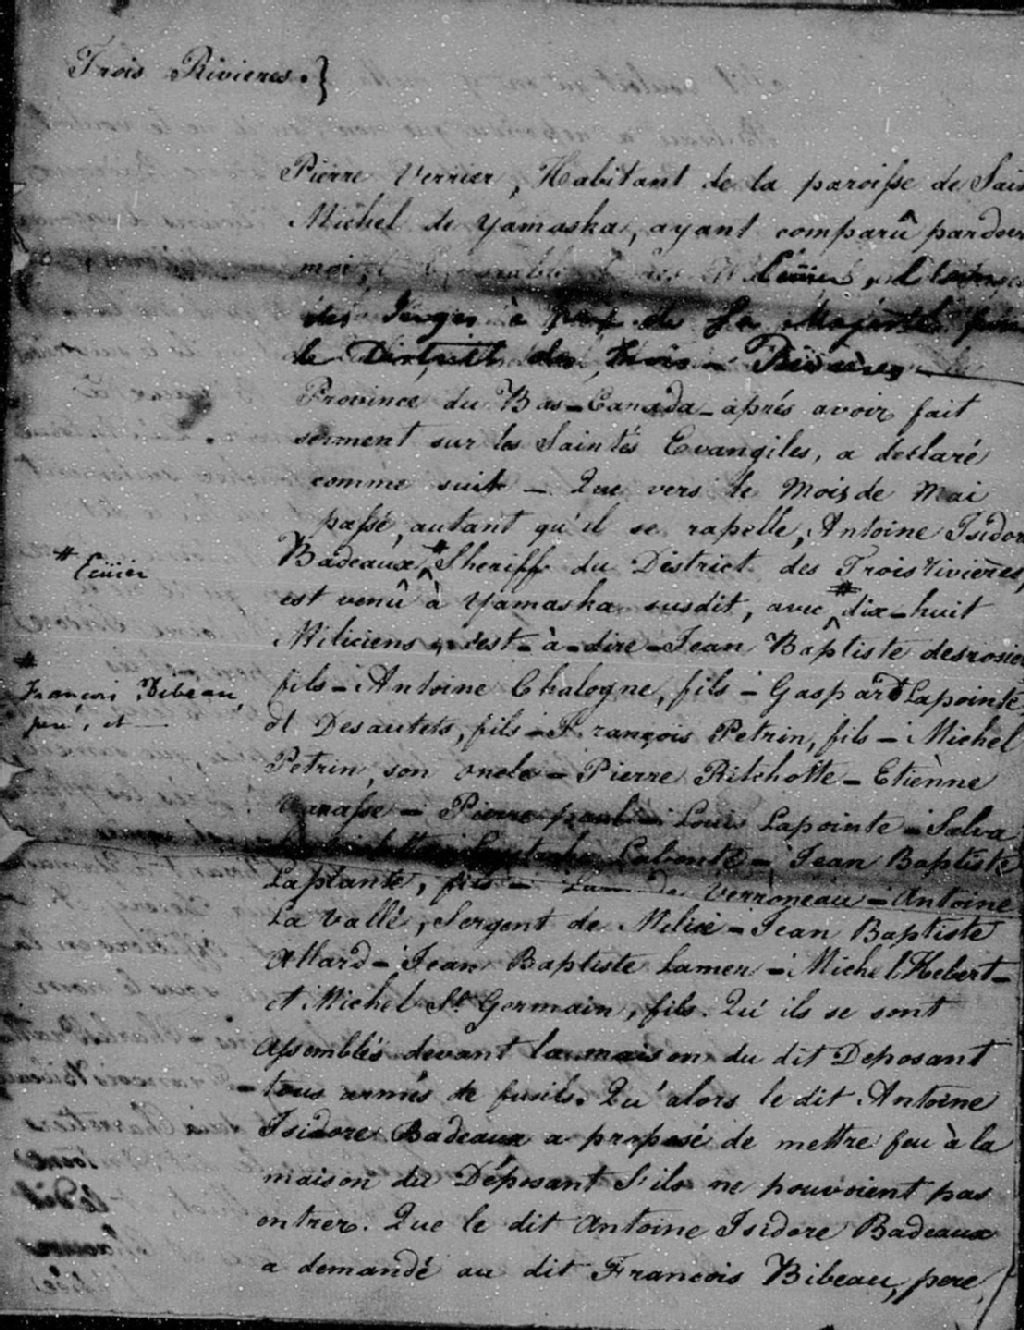 Trois Rivieres.}
Pierre Verrier, Habitant de la paroisse de Sain
Michel de Yamaska, ayant comparû pardev
moi,
des Juges à paix de Sa Majesté pour
le District des Trois-Rivières
Province du Bas-Canada après avoir fait
serment sur les Saintés Evangiles, a déclaré
comme suit – Que vers le Mois de Mai
passé, autant qu'il se rapelle, Antoine Isidor
Badeaux,# Sheriff du District des Trois rivières,
# Ecüier
est venû à Yamaska susdit, avec # dix-huit
Miliciens, c'est-à-dire – Jean Baptiste desrosie
# François Bibeau,
pere, et
fils – Antoine Chalogne, fils – Gaspard Lapointe
dt Desautels, fils – François Petrin, fils – Michel
Petrin, son oncle – Pierre Ritchotte – Etiènne
– Pierre paul – Louis Lapointe – Salva
Labonté – Jean Baptiste
Laplante, fils – Verroneau – Antoine
La Vallé, Sergent de Milice – Jean Baptiste
Allard – Jean Baptiste Lamer – Michel Hebert –
et Michel St. Germain, fils. Qu'ils se sont
assemblés devant la maison du dit Deposant
tous armés de fusils. Qu'alors le dit Antoine
Isidore Badeaux a proposé de mettre feu à la
maison du Déposant S'ils ne pouvoient pas
entrer. Que le dit Antoine Isidore Badeaux
a demandé au dit François Bibeau, pere,